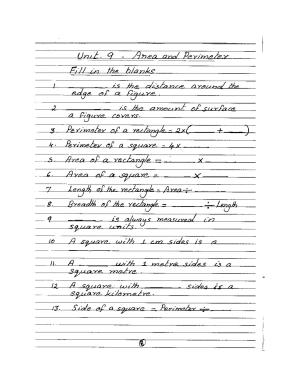 Unit. 9. Area and Perimeter
Fill in the blanks
1. ________ is the distance around the
edge of a figure.
2. ________ is the amount of surface
a figure covers.
3. Perimeter of a rectangle = 2x(____ + ____)
4. Perimeter of a square = 4x ____
5. Area of a rectangle = ____ x ____
6. Area of a square = ____ x ____
7. Length of the rectangle = Area ÷ ____
8. Breadth of the rectangle = ____ ÷ Length
9. ________ is always measured in
square units.
10. A square with 1 cm sides is a ____
11. A ____ with 1 metre sides is a
square metre.
12. A square with ____ sides is a
square kilometre.
13. Side of a square = Perimeter ÷ ____